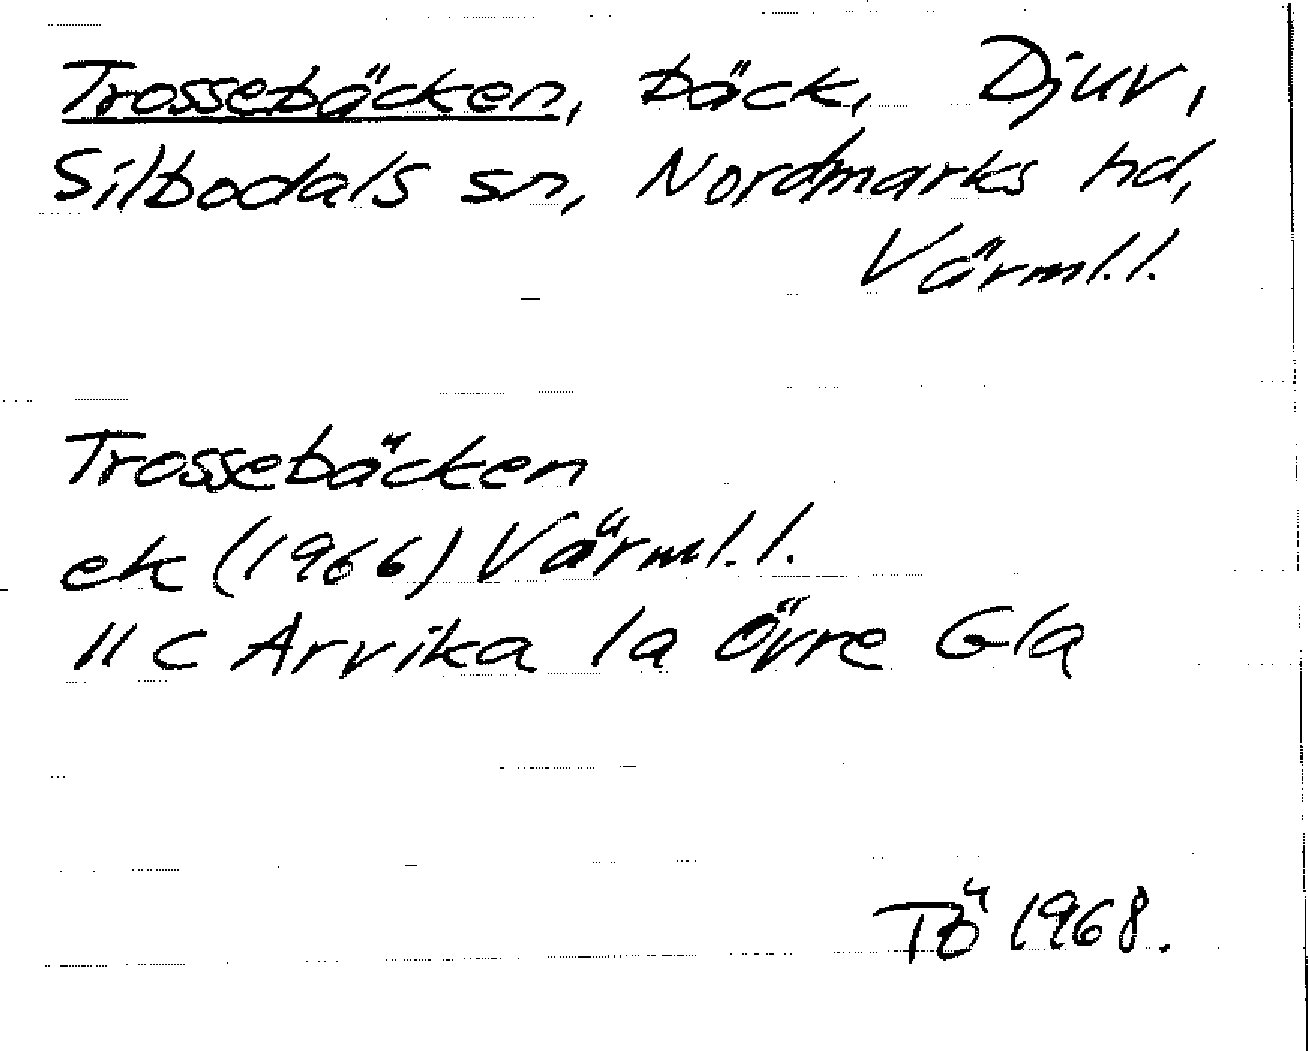 Trossebäcken, bäck, Djur,
Silbodals sn, Nordmarks hd,
Värml.l.
Trossebäcken
ek (1966) Värml.l.
11 C Arvika 1a Övre Gla
TÖ 1968.